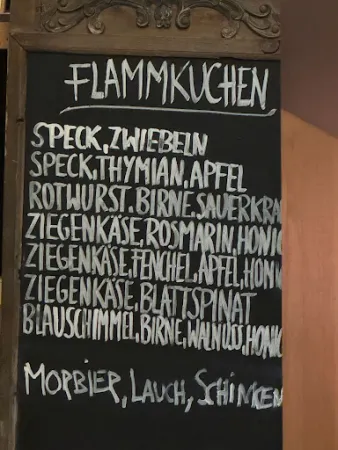 FLAMMKUCHEN
SPECK, ZWIEBELN
SPECK, THYMIAN, APFEL
ROTWURST, BIRNE, SAUERKRA
ZIEGENKÄSE, ROSMARIN, HONIG
ZIEGENKÄSE, FENCHEL, APFEL, HONI
ZIEGENKÄSE, BLATTSPINAT
BLAUSCHIMMEL, BIRNE, WALNUSS, HONIG
MORBIER, LAUCH, SCHINKEN